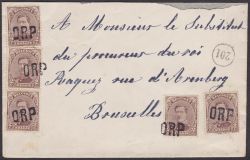 A Monsieur le Substitut
du procureur du roi
Raquez rue d'Arenberg
Bruxelles
ORP
ORP
ORP
ORP
ORP
201